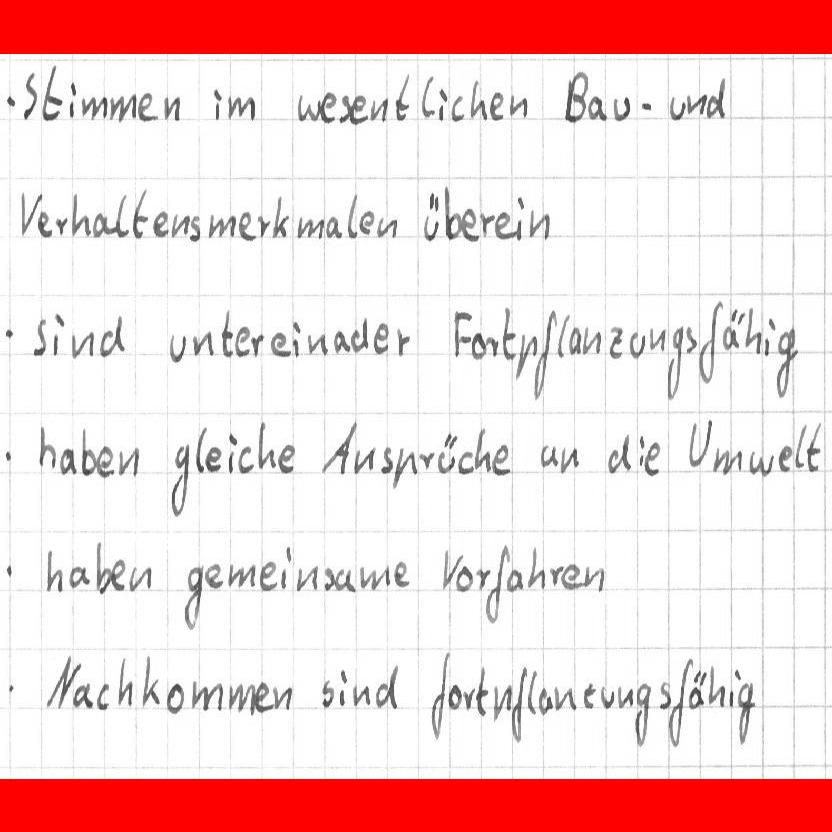 · Stimmen im wesentlichen Bau- und
Verhaltensmerkmalen überein
· sind untereinader Fortpflanzungsfähig
· haben gleiche Ansprüche an die Umwelt
· haben gemeinsame Vorfahren
· Nachkommen sind fortpflanzungsfähig